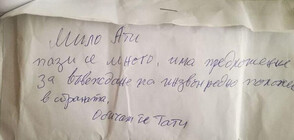 Мило Ати
пази се много, има предложение
за въвеждане на извънредно положе
в страната.
Обичам те Тати